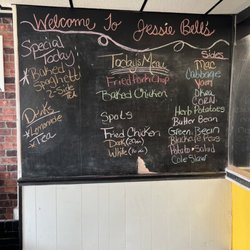 Welcome To Jessie Bell's
Special
Today!
Baked
Spaghetti
2-Side
Drinks
Lemonade
Tea
Today's Menu
Fried Pork Chop
Baked Chicken
Spots
Fried Chicken
Dark
White
Sides
Mac
Cabbage
Yam
Okra
Corn
Herb Potatoes
Butter Bean
Green Bean
Blackeye Peas
Potato Salad
Cole Slaw